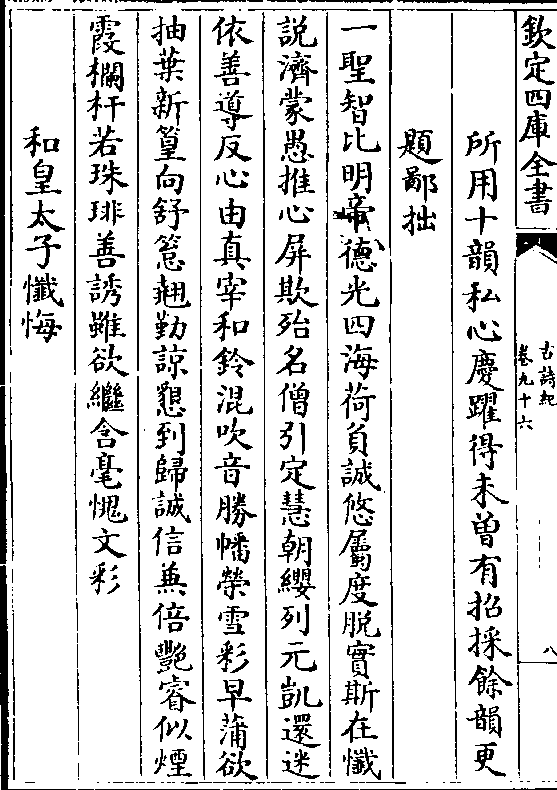 欽定四庫全書
古詩紀
卷九十六
八
所用十韻私心慶躍得未曽有招採餘韻更
題鄙拙
一聖智比明帝德光四海荷負誠悠屬度脱實斯在懴
説濟蒙愚推心屏欺殆名僧引定慧朝纓列元凱還迷
依善導反心由真宰和鈴混吹音勝幡榮雪彩早蒲欲
抽葉新篁向舒䈚翹勤諒懇到歸誠信兼倍艷睿似煙
霞欄杆若珠琲善誘雖欲繼含毫愧文彩
和皇太子懴悔